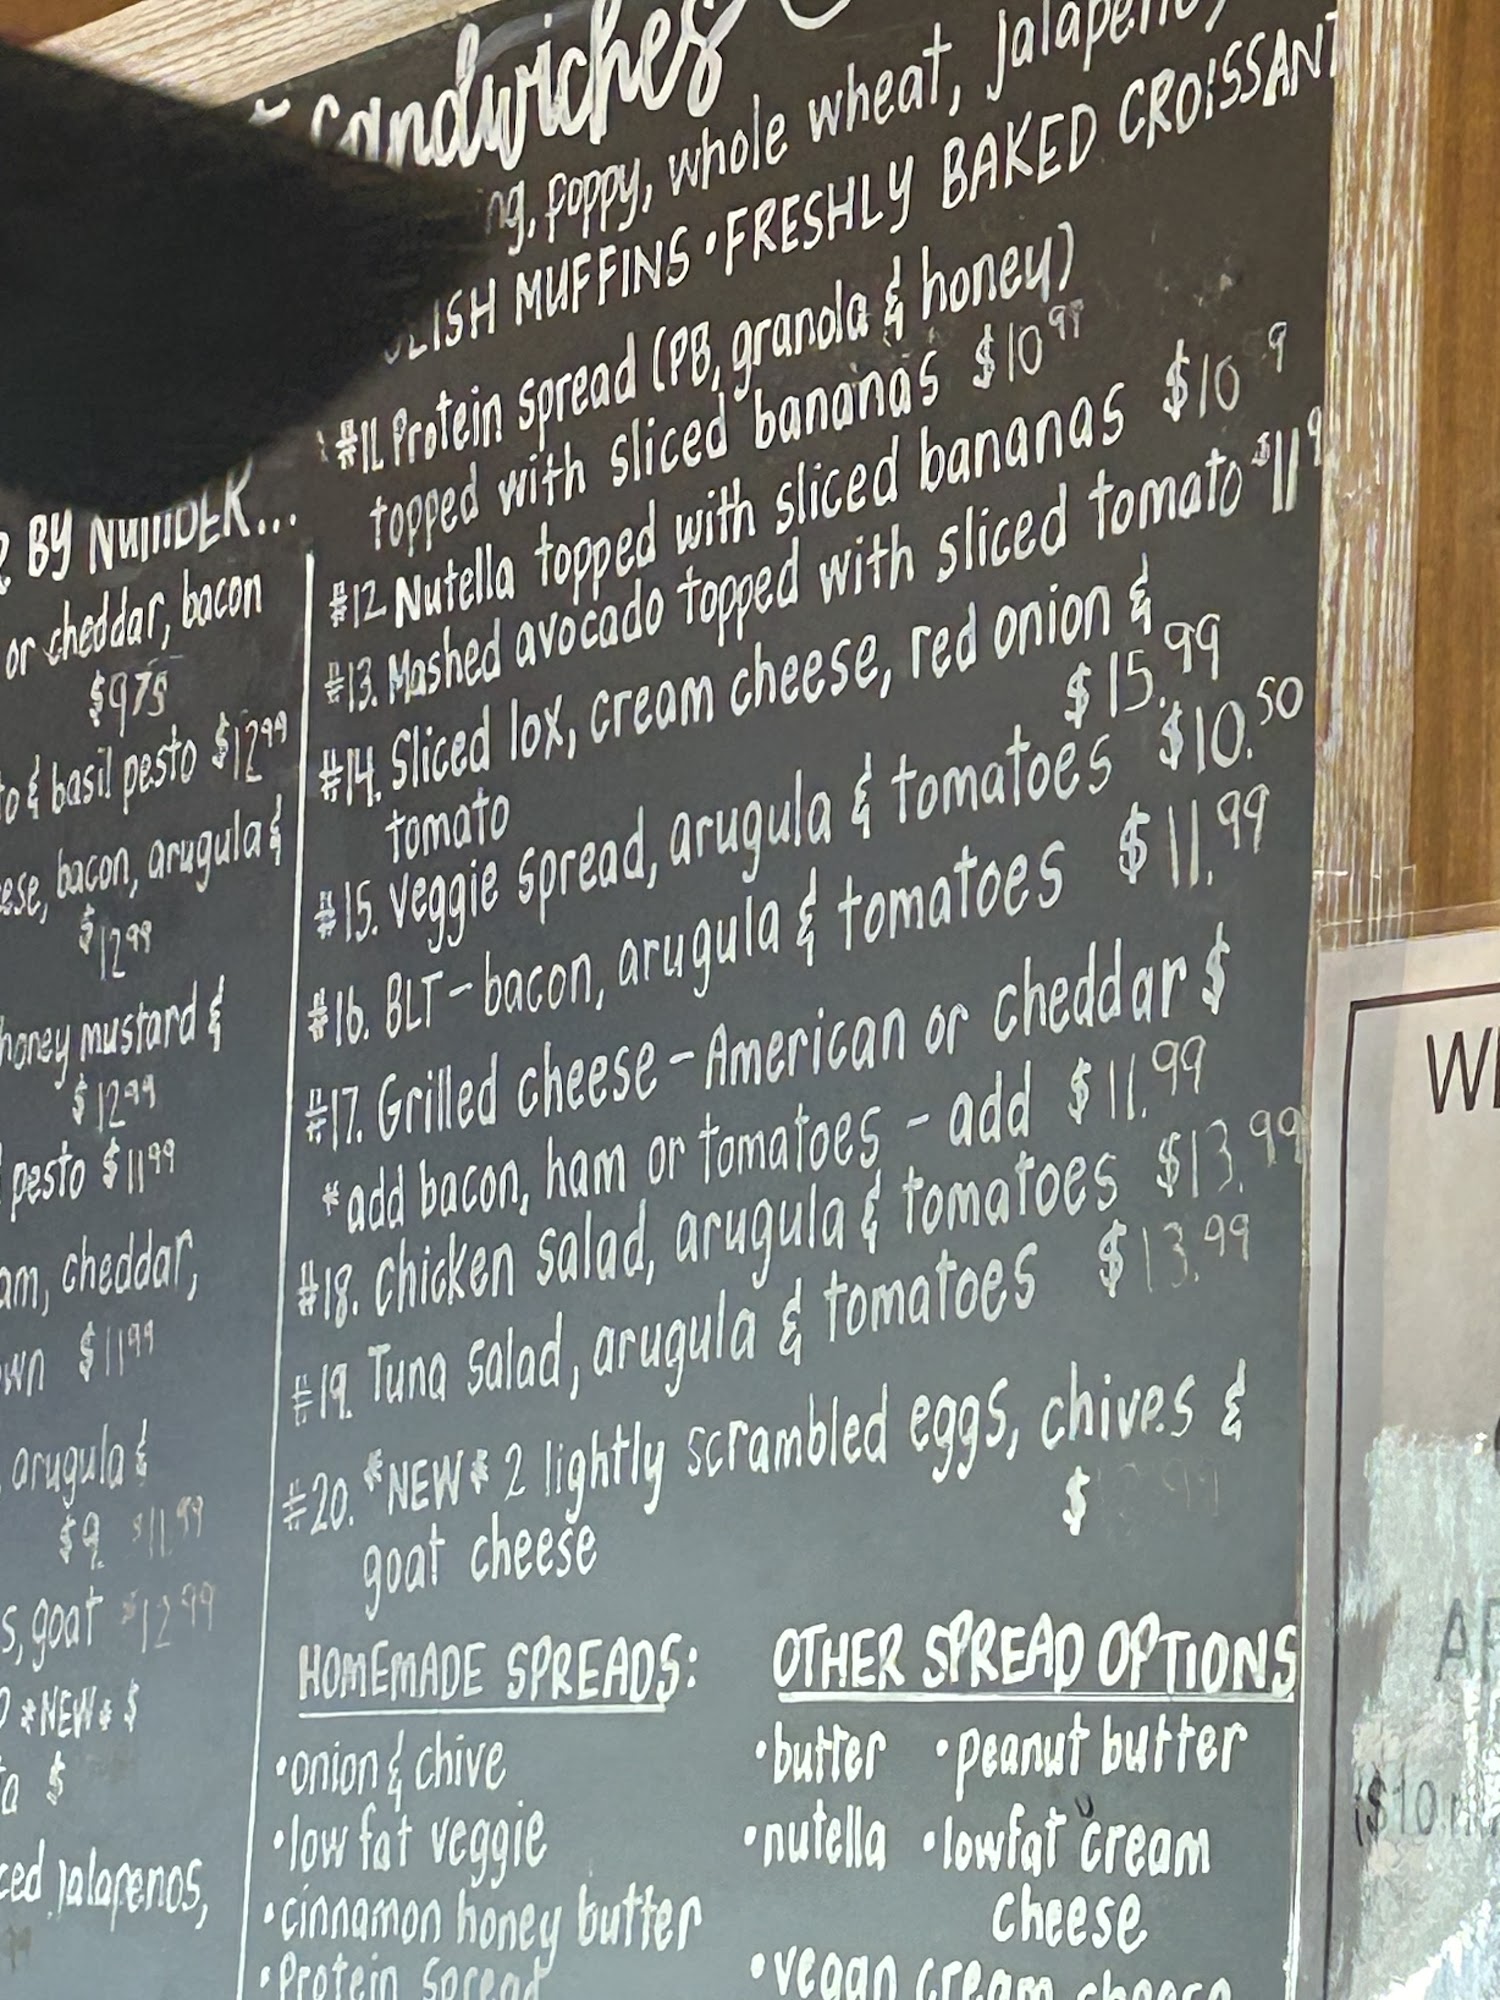 Sandwiches
poppy, whole wheat,
MUFFINS • FRESHLY BAKED CROISSANT
BY NUMBER...
or cheddar, bacon
$9.75
& basil pesto $12.99
bacon, arugula &
$12.99
honey mustard &
$12.99
pesto $11.99
cheddar,
$11.99
arugula &
$9 $11.99
goat $12.99
*NEW* $
$
Jalapenos,
#11. Protein spread (PB, granola & honey)
topped with sliced bananas $10.99
#12. Nutella topped with sliced bananas $10
#13. Mashed avocado topped with sliced tomato $11
#14. Sliced lox, cream cheese, red onion &
tomato $15.99
#15. Veggie spread, arugula & tomatoes $10.50
#16. BLT - bacon, arugula & tomatoes $11.99
#17. Grilled cheese - American or cheddar $
*add bacon, ham or tomatoes - add $11.99
#18. Chicken salad, arugula & tomatoes $13.99
#19. Tuna salad, arugula & tomatoes $13.99
#20. *NEW* 2 lightly scrambled eggs, chives &
goat cheese $
HOMEMADE SPREADS:
• onion & chive
• low fat veggie
• cinnamon honey butter
• Protein Spread
OTHER SPREAD OPTIONS
• butter • peanut butter
• nutella • lowfat cream
cheese
• vegan cream cheese